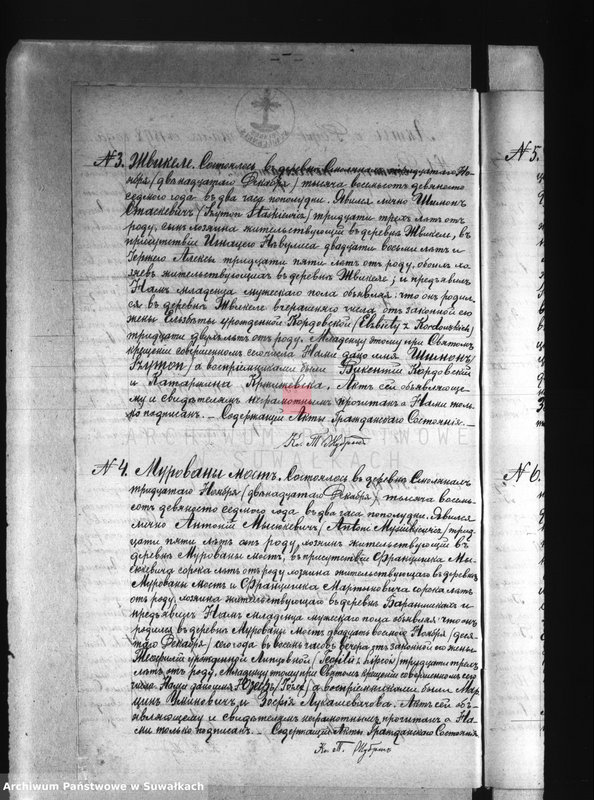 № 3. Жвикеле. Состоялось въ деревнѣ тридцатаго Но-
ября /двѣнадцатаго Декабря/ тысяча восемьсотъ девяносто
седьмого года въ два часа пополудни. Явился лично Шимонъ
Сташкевичъ /Szymon Staśkiewicz/ тридцати трехъ лѣтъ отъ
роду, сынъ хозяина жительствующій въ деревнѣ Жвикеле, въ
присутствіи Игнацего двадцати восьми лѣтъ и
Ержего Алексы тридцати пяти лѣтъ отъ роду, обоихъ хо-
зяевъ жительствующихъ въ деревнѣ Жвикеле; и предъявилъ
Намъ младенца мужескаго пола объявляя, что онъ родил-
ся въ деревнѣ Жвикеле вчерашняго числа отъ законной его
жены Ельзбеты урожденной Кордовской /Elżbiety z Kordowskich/
тридцати двухъ лѣтъ отъ роду. Младенцу этому при Святомъ
крещеніи совершенномъ сегочисла Нами дано имя Шимонъ/
Szymon/ а воспріемниками были Викентій Кордовскій
и Катаржина. Актъ сей объявляюще-
му и свидѣтелямъ неграмотнымъ прочитанъ а Нами толь-
ко подписанъ. — Содержащій Акты Гражданскаго Состоянія. —
Кс. Т.
№ 4. Мурованы мостъ. Состоялось въ деревнѣ Смолянахъ
тридцатаго Ноября /двѣнадцатаго Декабря/ тысяча восемь-
сотъ девяносто седьмого года въ два часа пополудни. Явился
лично Антоній /Antoni/ трид-
цати пяти лѣтъ отъ роду, хозяинъ жительствующій въ
деревнѣ Мурованы мостъ, въ присутствіи Францишка
сорока лѣтъ отъ роду хозяина жительствующаго въ деревнѣ
Мурованы мостъ и Францишка Мартыновича сорока лѣтъ
отъ роду, хозяина жительствующаго въ деревнѣ и
предъявилъ Намъ младенца мужескаго пола объявляя что онъ
родился въ деревнѣ Мурованы мостъ двадцать восьмого Ноября /деся-
таго Декабря/ сего года въ восемь часовъ вечера отъ законной его жены
Теофили урожденной Липовной /Teofili z Lipów/ тридцати трехъ
лѣтъ отъ роду. Младенцу этому при Святомъ крещеніи совершенномъ сего
числа Нами дано имя Юзефъ /Józef/ а воспріемниками были Мар-
цинъ и Зофія Лукашевичова. Актъ сей объ-
являющему и свидѣтелямъ неграмотнымъ прочитанъ а На-
ми только подписанъ. — Содержащій Акты Гражданскаго Состоянія.
Кс. Т.
№ 5.
№ 6.
ARCHIWUM PAŃSTWOWE
W SUWAŁKACH
Archiwum Państwowe w Suwałkach